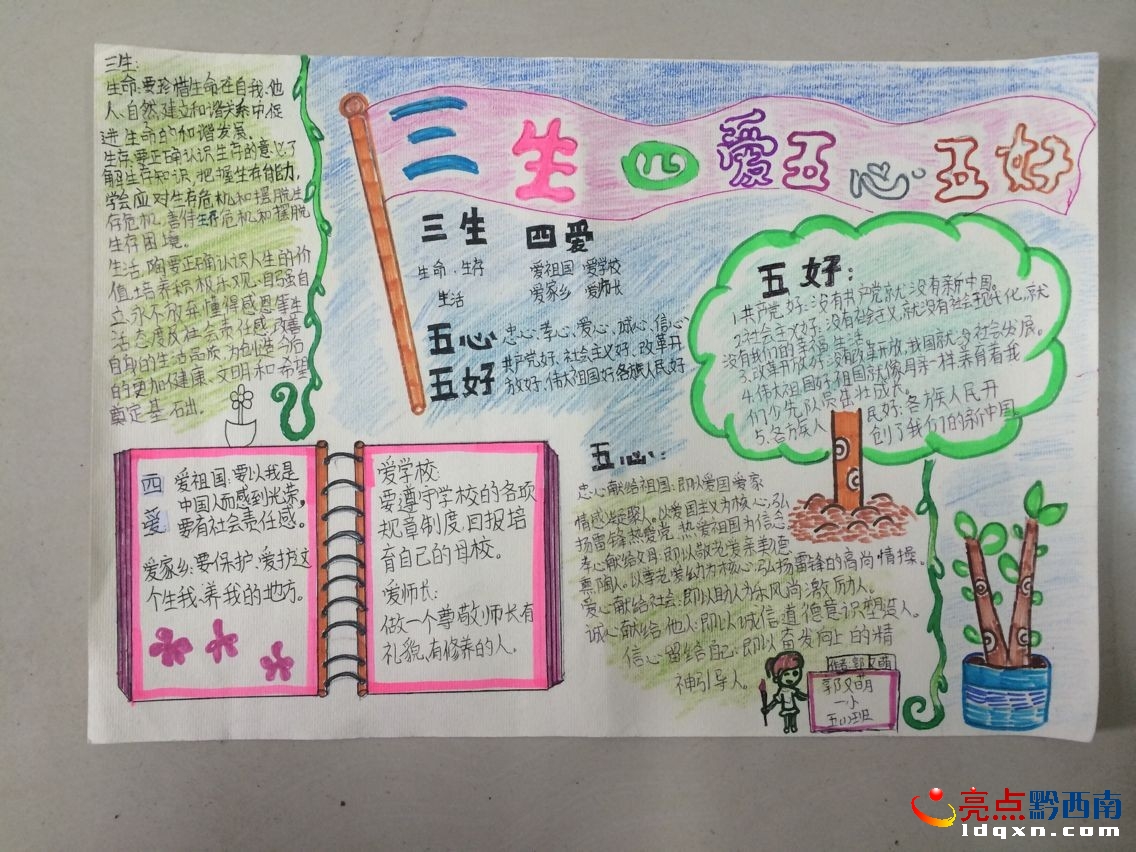 三生四爱五心五好
三生:
生命:要珍惜生命在自我、他
人、自然,建立和谐关系中,促
进生命的和谐发展。
生存:要正确认识生存的意义,了
解生存知识,把握生存能力,
学会应对生存危机和摆脱生
存危机,善待生存危机和摆脱
生存困境。
生活,陶要正确认识人生的价
值,培养积极乐观、自强自
立、永不放弃、懂得感恩等生
活态度及社会责任感,改善
自身的生活品质,为创造今后
的更加健康、文明和希望
奠定基础。
三生
生命、生存
生活
四爱
爱祖国 爱学校
爱家乡 爱师长
五心
忠心、孝心、爱心、诚心、信心
五好
共产党好、社会主义好、改革开
放好、伟大祖国好、各族人民好
五好:
1.共产党好:没有共产党就没有新中国。
2.社会主义好:没有社会主义,就没有社会现代化,就
没有我们的幸福生活。
3.改革开放好:没有改革开放,我国就没社会发展。
4.伟大祖国好:祖国就像母亲一样养育着我
们少先队员茁壮成长。
5.各方族人民好:各方族人民开
创了我们的新中国。
四爱
爱祖国:要以我是
中国人而感到光荣,
要有社会责任感。
爱家乡:要保护、爱护这
个生我、养我的地方。
爱学校:
要遵守学校的各项
规章制度,回报培
育自己的母校。
爱师长:
做一个尊敬师长有
礼貌、有修养的人。
五心:
忠心献给祖国:即以爱国爱家
情感凝聚人。以爱国主义为核心,弘
扬雷锋热爱党、热爱祖国为信念。
孝心献给父母:即以敬老爱亲美德
熏陶人。以孝老爱幼为核心,弘扬雷锋的高尚情操。
爱心献给社会:即以助人为乐风尚激励人。
诚心献给他人:即以诚信道德意识塑造人。
信心留给自己:即以奋发向上的精
神引导人。
作者:郭又萌
郭又萌
一小
五(1)班
亮点黔西南
ldqxn.com